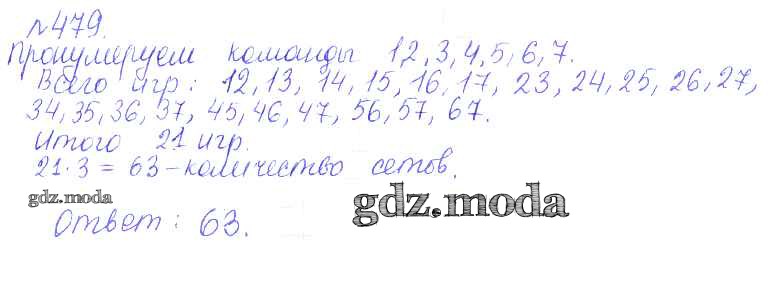 №479.
Пронумеруем команды 1,2,3,4,5,6,7.
Всего игр: 12,13, 14, 15, 16, 17, 23, 24, 25, 26, 27,
34, 35, 36, 37, 45, 46, 47, 56, 57, 67.
Итого 21 игр.
21·3 = 63 – количество сетов.
gdz.moda
gdz.moda
Ответ: 63.